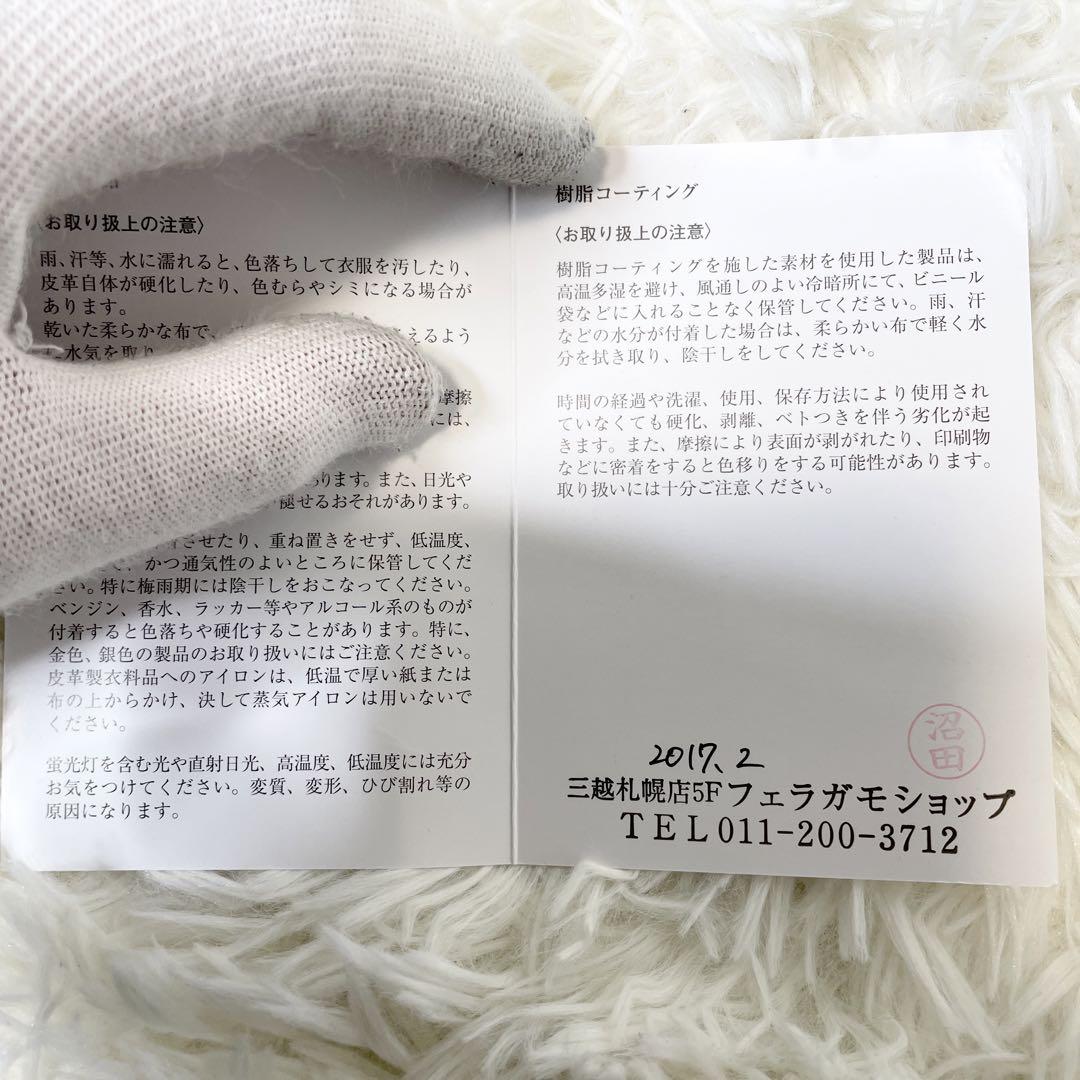 〈お取り扱上の注意〉
雨、汗等、水に濡れると、色落ちして衣服を汚したり、
皮革自体が硬化したり、色むらやシミになる場合が
あります。
乾いた柔らかな布で、
えるよう
水気を取り
摩擦
には、
ります。また、日光や
褪せるおそれがあります。
させたり、重ね置きをせず、低温度、
かつ通気性のよいところに保管してくだ
さい。特に梅雨期には陰干しをおこなってください。
ベンジン、香水、ラッカー等やアルコール系のものが
付着すると色落ちや硬化することがあります。特に、
金色、銀色の製品のお取り扱いにはご注意ください。
皮革製衣料品へのアイロンは、低温で厚い紙または
布の上からかけ、決して蒸気アイロンは用いないで
ください。
蛍光灯を含む光や直射日光、高温度、低温度には充分
お気をつけてください。変質、変形、ひび割れ等の
原因になります。
樹脂コーティング
〈お取り扱上の注意〉
樹脂コーティングを施した素材を使用した製品は、
高温多湿を避け、風通しのよい冷暗所にて、ビニール
袋などに入れることなく保管してください。雨、汗
などの水分が付着した場合は、柔らかい布で軽く水
分を拭き取り、陰干しをしてください。
時間の経過や洗濯、使用、保存方法により使用され
ていなくても硬化、剥離、ベトつきを伴う劣化が起
きます。また、摩擦により表面が剥がれたり、印刷物
などに密着をすると色移りをする可能性があります。
取り扱いには十分ご注意ください。
沼田
2017.2
三越札幌店5Fフェラガモショップ
TEL011-200-3712